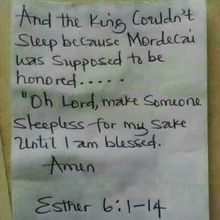 And the King Couldn't
Sleep because Mordecai
was Supposed to be
honored.....
"Oh Lord, make Someone
Sleepless for my Sake
Until I am blessed.
Amen
Esther 6:1-14